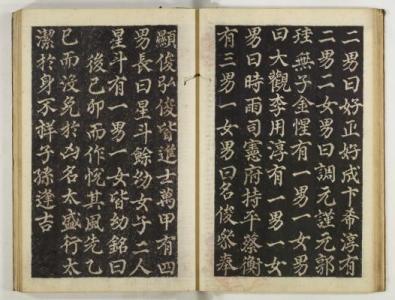 二男曰好正好成卞希淳有
二男二女男曰調元謹元郭
無子金惺有一男一女男
曰大觀李用淳有一男一女
男曰時雨司憲府持平蔡衡
有三男一女男曰名俊參奉
顯俊弘俊皆進士萬甲有四
男長曰星斗餘幼女子二人
星斗有一男一女皆幼銘曰
後己卯而作悅其風先乙
巳而沒免於凶名太盛行太
潔於身不祥子孫逢吉